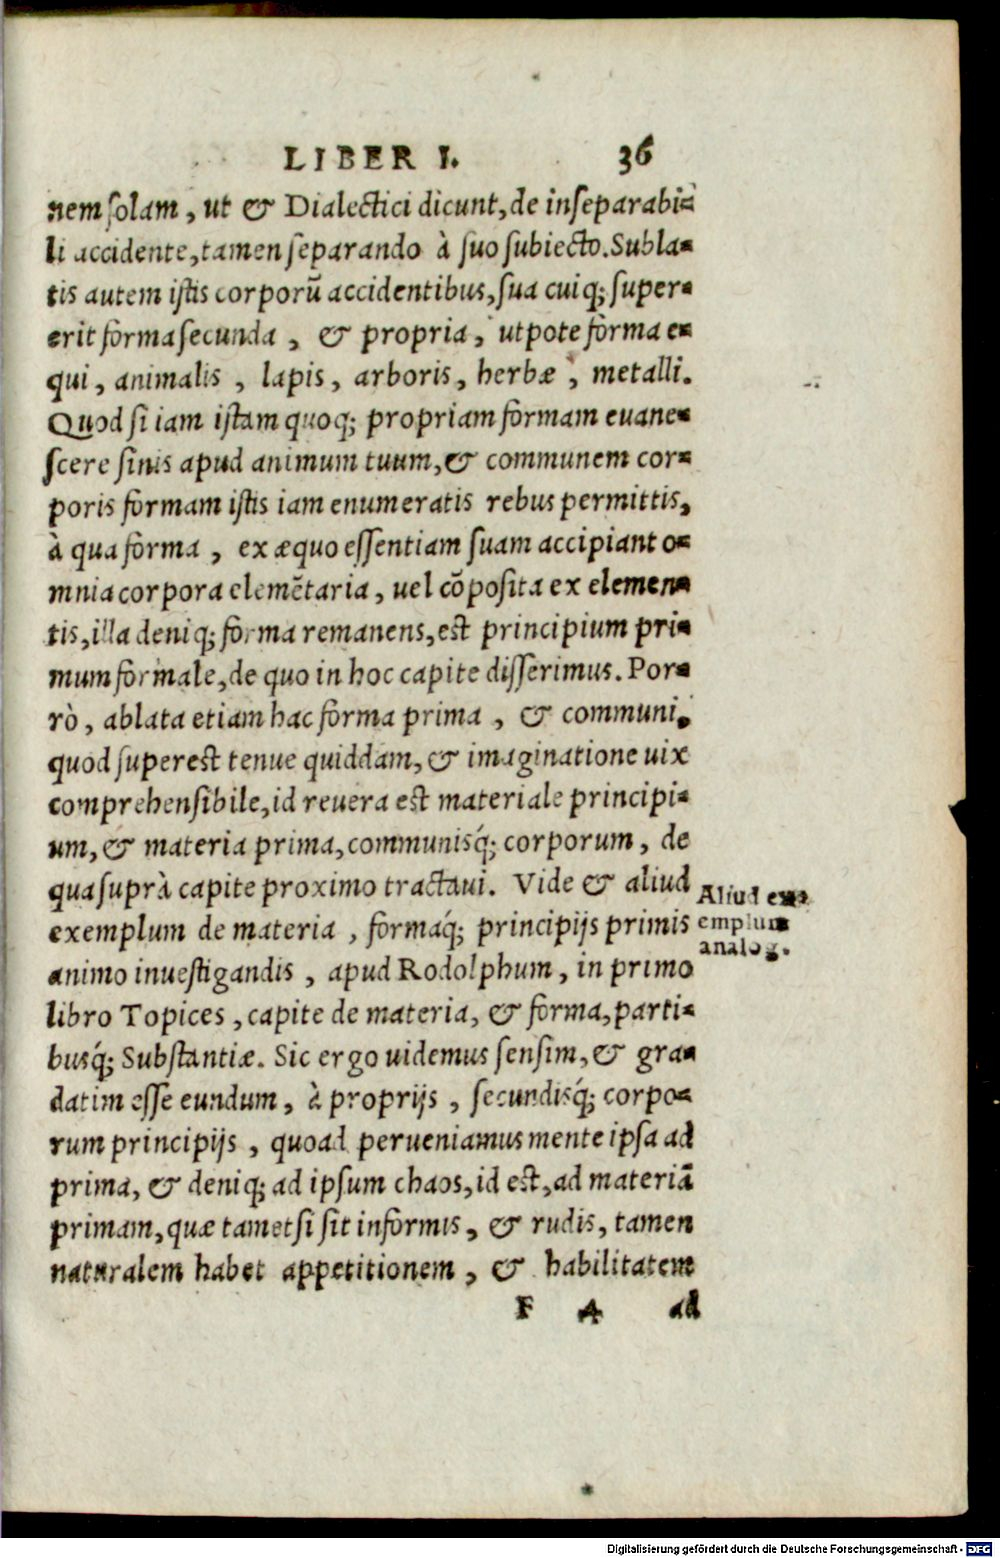 LIBER I. 36
nem solam, ut & Dialectici dicunt, de inseparabi-
li accidente, tamen separando à suo subiecto. Subla-
tis autem istis corporũ accidentibus, sua cuiq; super-
erit forma secunda, & propria, utpote forma e-
qui, animalis, lapis, arboris, herbæ, metalli.
Quod si iam istam quoq; propriam formam euane-
scere sinis apud animum tuum, & communem cor-
poris formam istis iam enumeratis rebus permittis,
à qua forma, ex æquo essentiam suam accipiant o-
mnia corpora elemẽtaria, uel cõposita ex elemen-
tis, illa deniq; forma remanens, est principium pri-
mum formale, de quo in hoc capite disserimus. Por-
rò, ablata etiam hac forma prima, & communi,
quod superest tenue quiddam, & imaginatione uix
comprehensibile, id reuera est materiale principi-
um, & materia prima, communisq́; corporum, de
qua suprà capite proximo tractaui. Vide & aliud
exemplum de materia, formaq́; principijs primis
animo inuestigandis, apud Rodolphum, in primo
libro Topices, capite de materia, & forma, parti-
busq́; Substantiæ. Sic ergo uidemus sensim, & gra-
datim esse eundum, à proprijs, secundisq́; corpo-
rum principijs, quoad perueniamus mente ipsa ad
prima, & deniq; ad ipsum chaos, id est, ad materiã
primam, quæ tametsi sit informis, & rudis, tamen
naturalem habet appetitionem, & habilitatem
F 4 ad
Aliud ex-
emplum
analog.
Digitalisierung gefördert durch die Deutsche Forschungsgemeinschaft - DFG